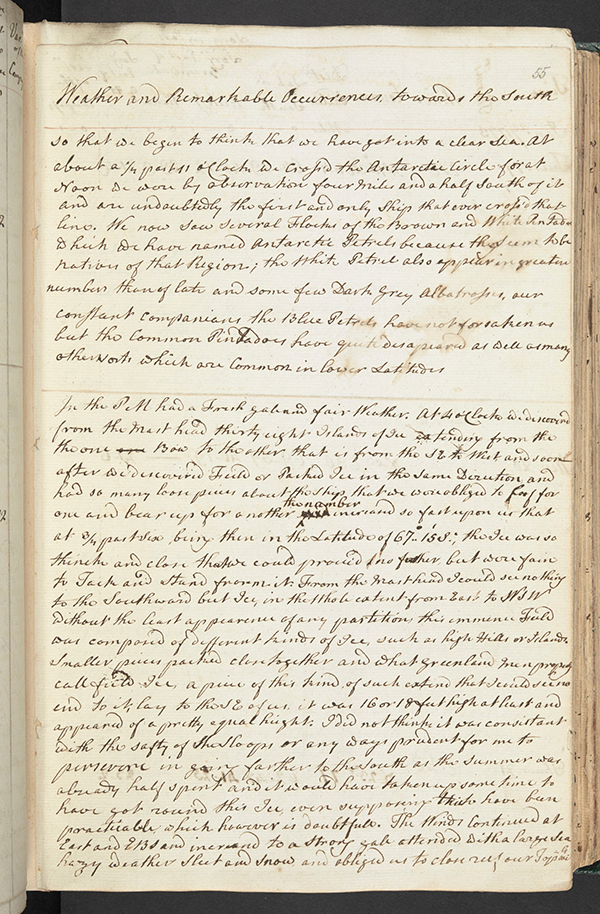 55
Weather and Remarkable Occurrences towards the South
so that we begin to think that we have got into a clear Sea. At
about a 1/4 past 11 oClock we cross'd the Antarctic Circle for at
Noon we were by observation four Miles and a half South of it
and are undoubtedly the first and only Ship that ever cross'd that
line. We now saw several Flocks of the Brown and White Pintadoes
which we have named Antarctic Petrels because they seem to be
natives of that Region; the White Petrel also appear in greater
numbers than of late and some few Dark Grey Albatrosses, our
constant companians the Blue Petrels have not forsaken us
but the Common Pintadoes have quite desapeared as well as many
other sorts which are Common in lower Latitudes
In the PM had a Fresh gale and fair Weather. At 4 oClock we discovered
from the Mast head thirty eight Islands of Ice extending from the
the one Bow to the other, that is from the SE to West and soon
after we discovered Field or Packed Ice in the same Direction and
had so many loose pieces about the Ship that we were obliged to loof for
one and bear up for another, the number increased so fast upon us that
at 3/4 past Six being then in the Latitude of 67° 15' S, the Ice was so
thick and close that we could proceed no further but were fain
to Tack and stand from it. From the mast head I could see nothing
to the Southward but Ice, in the Whole extent from East to WSW
without the least appearence of any partition, this immence Field
was composed of different kinds of Ice, such as high Hills or Islands,
smaller pieces packed close together and what Greenland men properly
call field Ice, a piece of this kind, of such extend that I could see no
end to it, lay to the SE of us, it was 16 or 18 feet high at least and
appeared of a pretty equal height. I did not think it was consistant
with the safty of the Sloops or any ways prudent for me to
persevere in going farther to the South as the summer was
already half spent and it would have taken up some time to
have got round this Ice, even supposing this to have been
practicable, which however is doubtfull. The Winds Continued at
East and EBS and increased to a strong gale attended with a large Sea
hazy weather Sleet and Snow and obliged us to close reef our Topsails